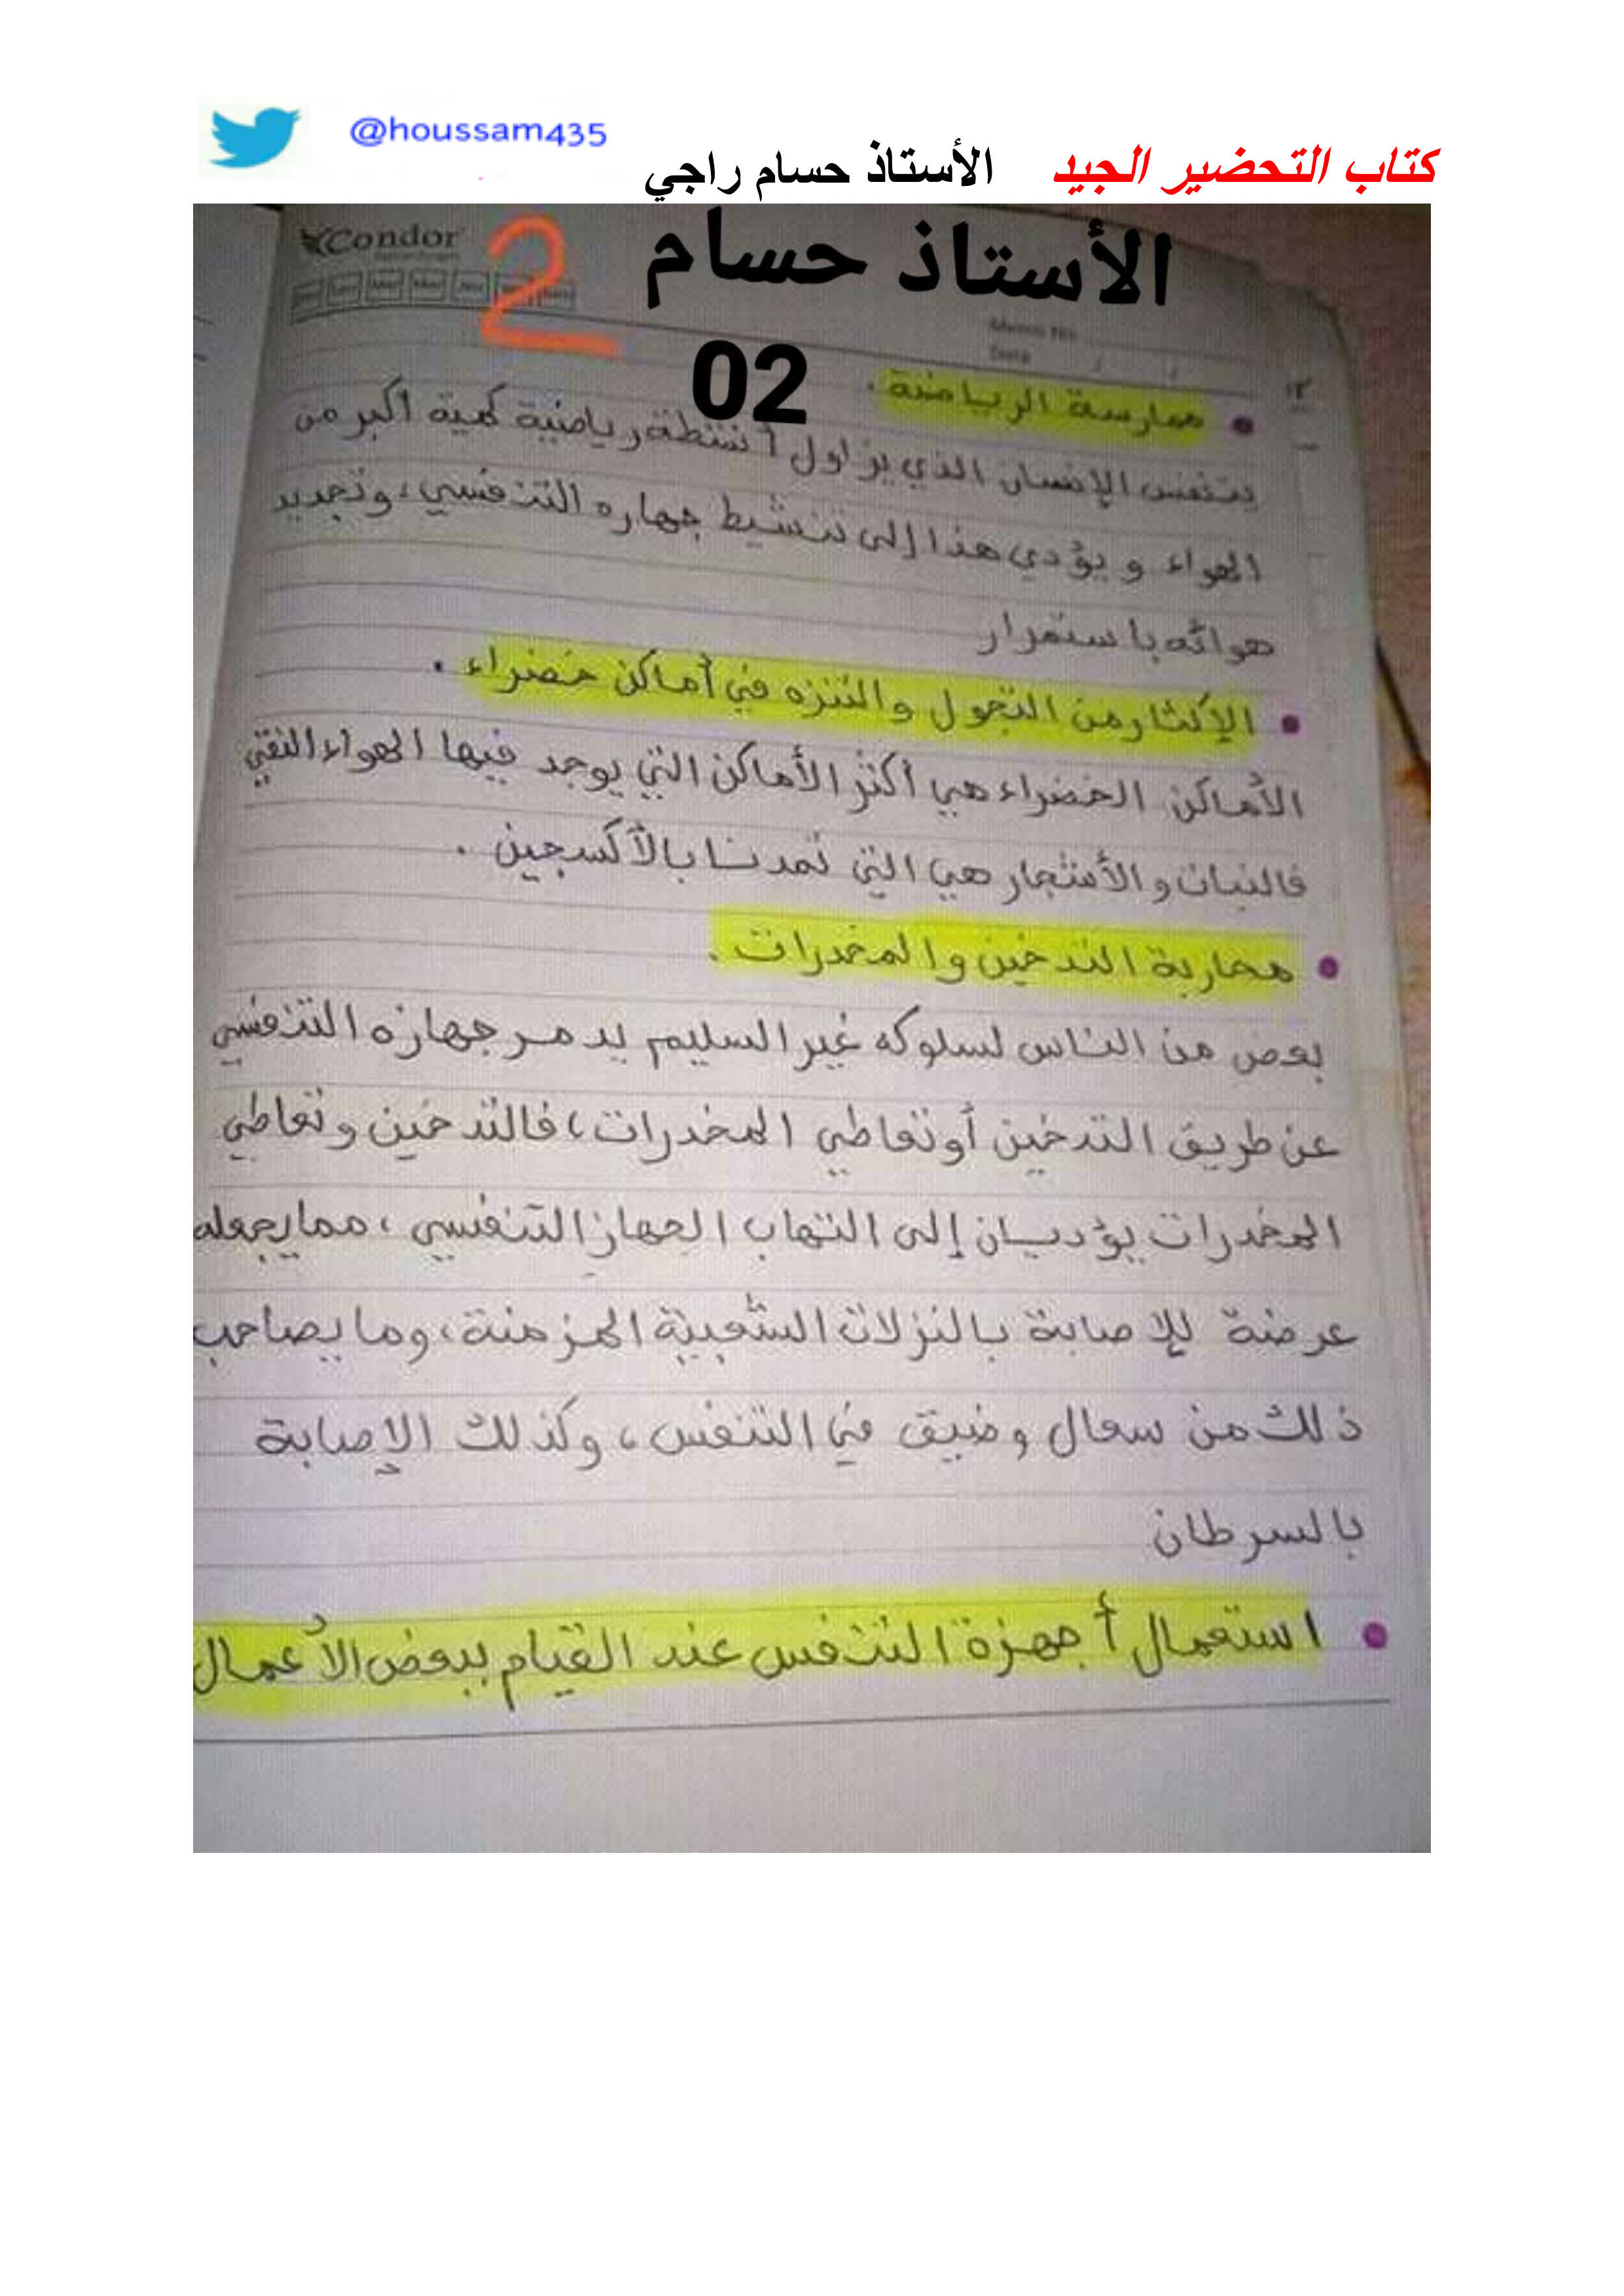 @houssam435
كتاب التحضير الجيد الأستاذ حسام راجي
Condor
2
الأستاذ حسام
02
Memo No
Date / /
• ممارسة الرياضة .
يتنفس الإنسان الذي يزاول أنشطة رياضية كمية أكبر من
الهواء و يؤدي هذا إلى تنشيط جهازه التنفسي، وتجديد
هوائه باستمرار
• الإكثار من التجول والتنزه في أماكن خضراء .
الأماكن الخضراء هي أكثر الأماكن التي يوجد فيها الهواء النقي
فالنبات و الأشجار هي التي تمدنا بالأكسجين .
• محاربة التدخين والمخدرات .
بعض من الناس لسلوكه غير السليم يدمر جهازه التنفسي
عن طريق التدخين أو تعاطي المخدرات، فالتدخين وتعاطي
المخدرات يؤديان إلى التهاب الجهاز التنفسي، مما يجعله
عرضة للإصابة بالنزلات الشعبية المزمنة، وما يصاحب
ذلك من سعال وضيق في التنفس، وكذلك الإصابة
بالسرطان
• استعمال أجهزة التنفس عند القيام ببعض الأعمال